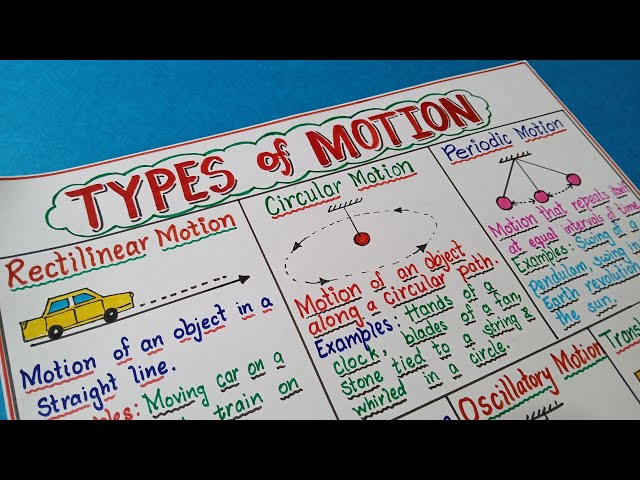 TYPES of MOTION
Rectilinear Motion
Motion of an object in a
Straight line.
Moving car on a
train on
Circular Motion
Motion of an object
along a circular path.
Examples: Hands of a
clock, blades of a fan,
stone tied to a string &
whirled in a circle.
Periodic Motion
Motion that repeats itself
at equal intervals of time
Examples: Swing of a
pendulam, swing
Earth revolution
the sun.
Oscillatory Motion